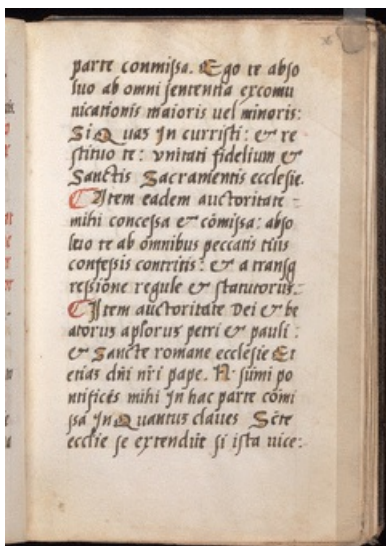 parte conmissa. Ego te abso
luo ab omni sententia excomu
nicationis maioris uel minoris:
Si Quas Jn curristi: & re
stituo te: vnitati fidelium &
Sanctis Sacramentis ecclesie.
Item eadem auctoritate
mihi concessa & cōmissa: abso
luo te ab omnibus peccatis tuis
confessis contritis: & a transg
ressione regule & statutorus.
Item auctoritate Dei & be
atorus aplorus petri & pauli:
& Sancte romane ecclesie Et
etias dn̄i nr̄i pape. N. sumi po
ntificés mihi Jn hac parte cōmi
ssa Jn Quantus claues Scte
ecclie se extendūt si ista uice: